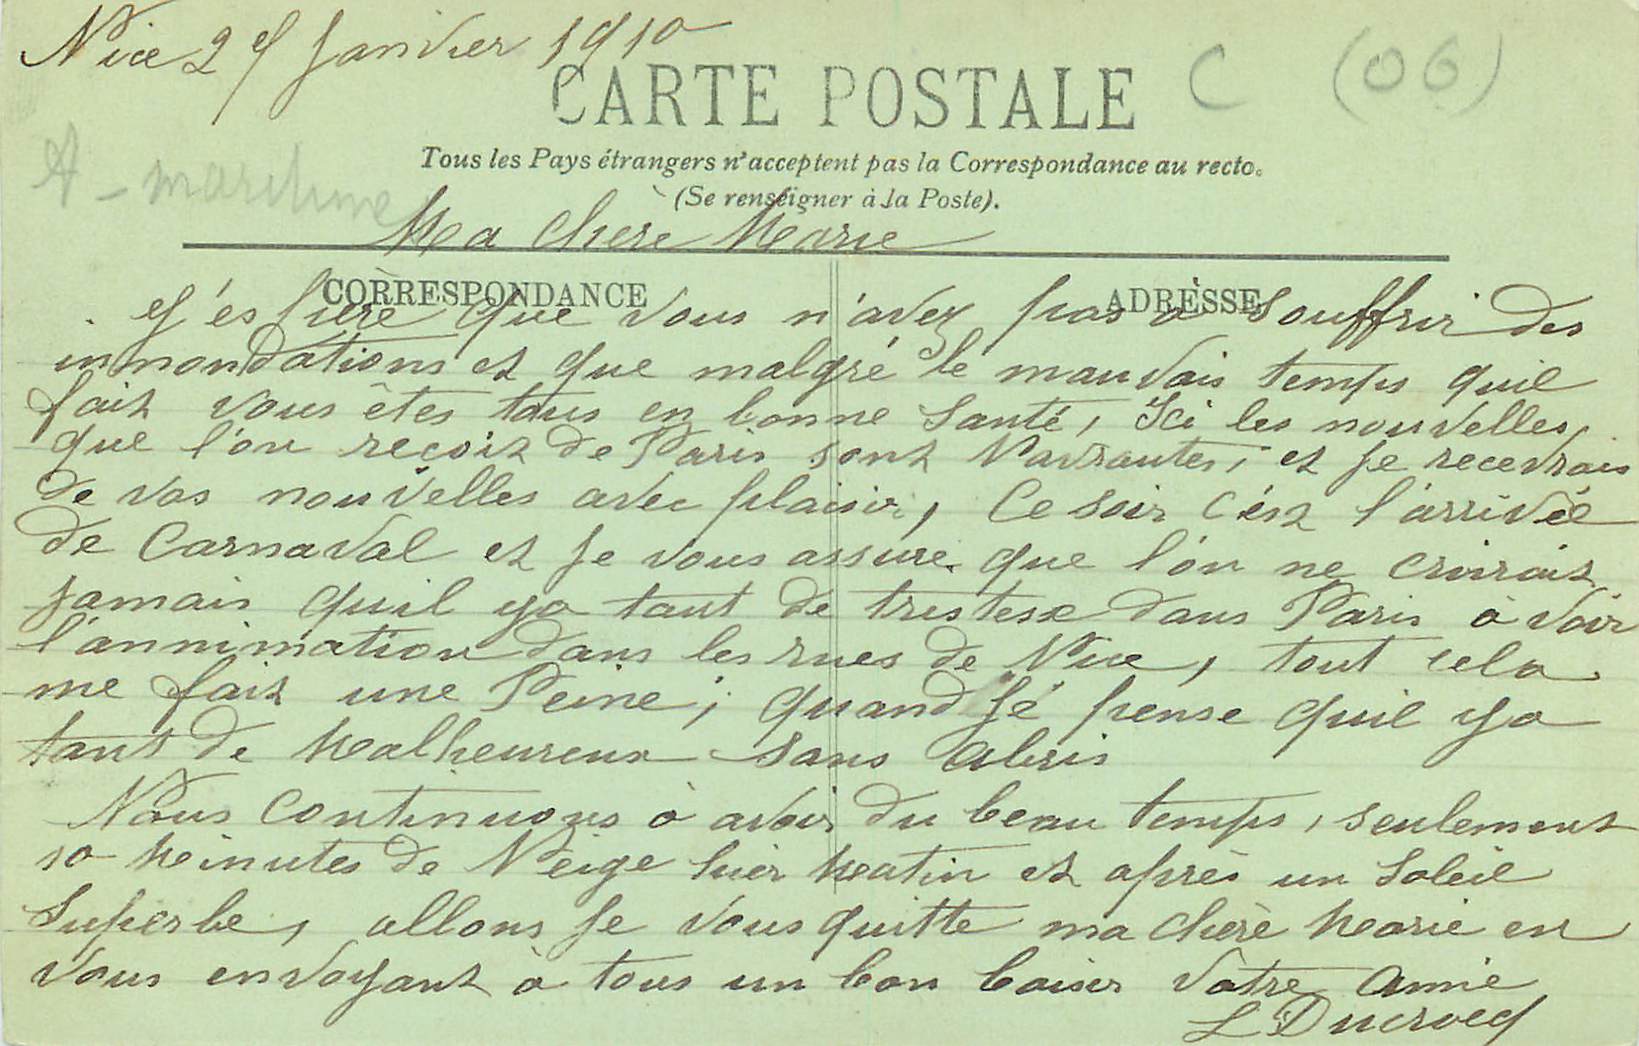 Nice 27 Janvier 1910
C (06)
CARTE POSTALE
Tous les Pays étrangers n'acceptent pas la Correspondance au recto.
(Se renseigner à la Poste).
A - maritime
Ma Chère Marie
CORRESPONDANCE
ADRESSE
J'espère que vous n'avez pas à Souffrir des
innondations et que malgré le mauvais temps quil
fait vous êtes tous en bonne Santé, Ici les nouvelles
que l'on reçoit de Paris sont Navrantes, et je recevrais
de vos nouvelles avec plaisir, Ce soir c'est l'arrivée
de Carnaval et je vous assure que l'on ne croirait
jamais quil ya tant de tristesse dans Paris à voir
l'annimation dans les rues de Nice, tout cela
me fait une Peine, quand jé pense quil ya
tant de Malheureux sans abris
Nous Continuons à avoir du beau temps, seulement
10 Minutes de Neige hier Matin et après un Soleil
Superbe, allons je vous quitte ma chère Marie en
vous envoyant à tous un bon baiser Votre Amie
L Ducrocq